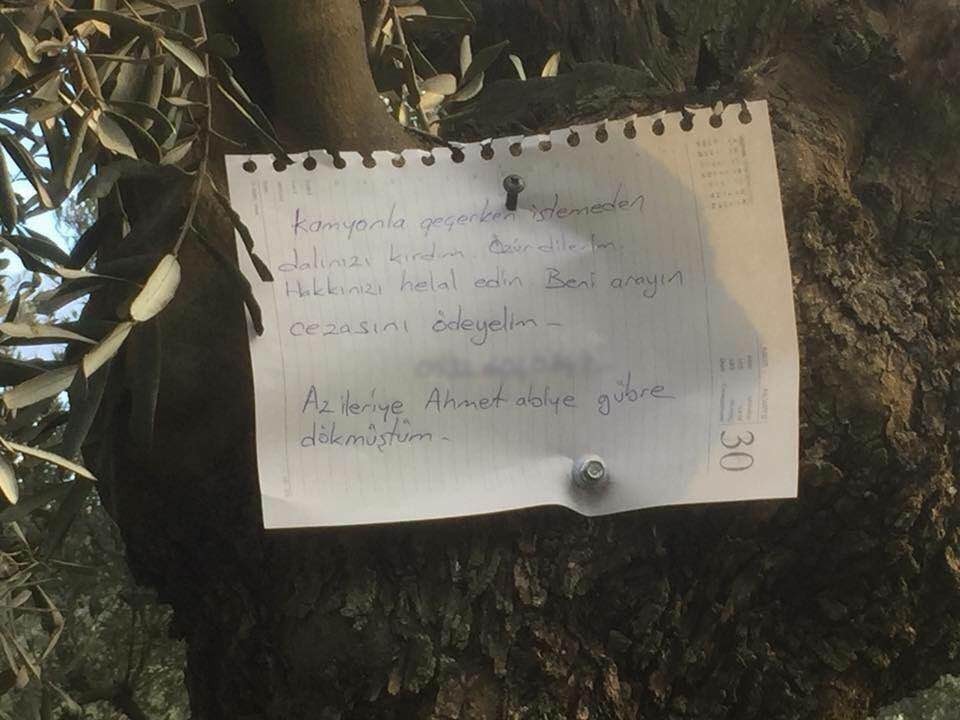 Kamyonla geçerken istemeden
dalınızı kırdım. Özür dilerim.
Hakkınızı helal edin Beni arayın
cezasını ödeyelim -
Az ileriye Ahmet abiye gübre
dökmüştüm -
30